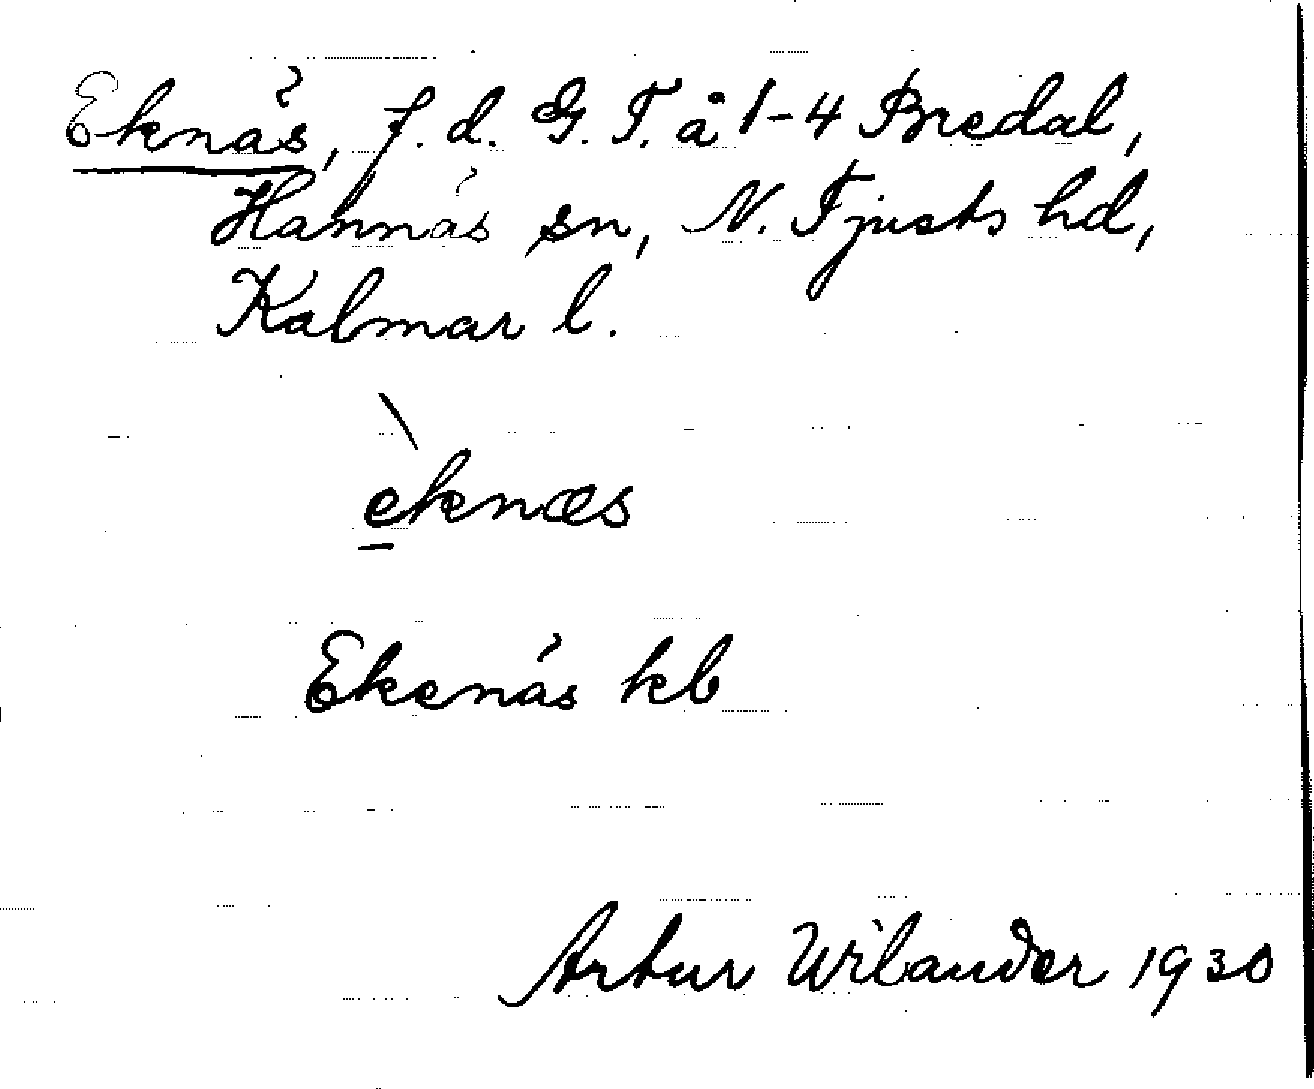 Eknäs, f. d. G. T. å 1-4 Bredal,
Hannäs sn, N. Tjusts hd,
Kalmar l.
èknæs
Ekenäs kb
Artur Wilander 1930